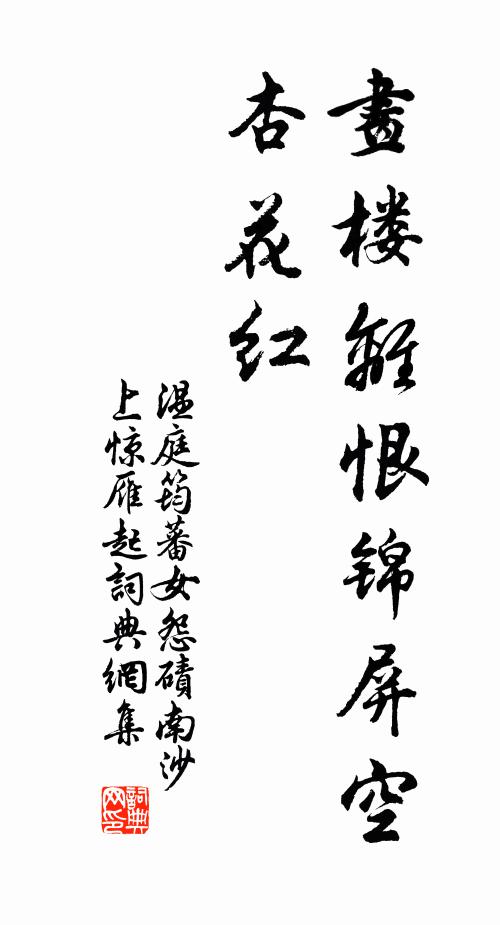 畫楼離恨锦屏空
杏花红
温庭筠蕃女怨磧南沙
上惊雁起詞典網集
詞典
网印